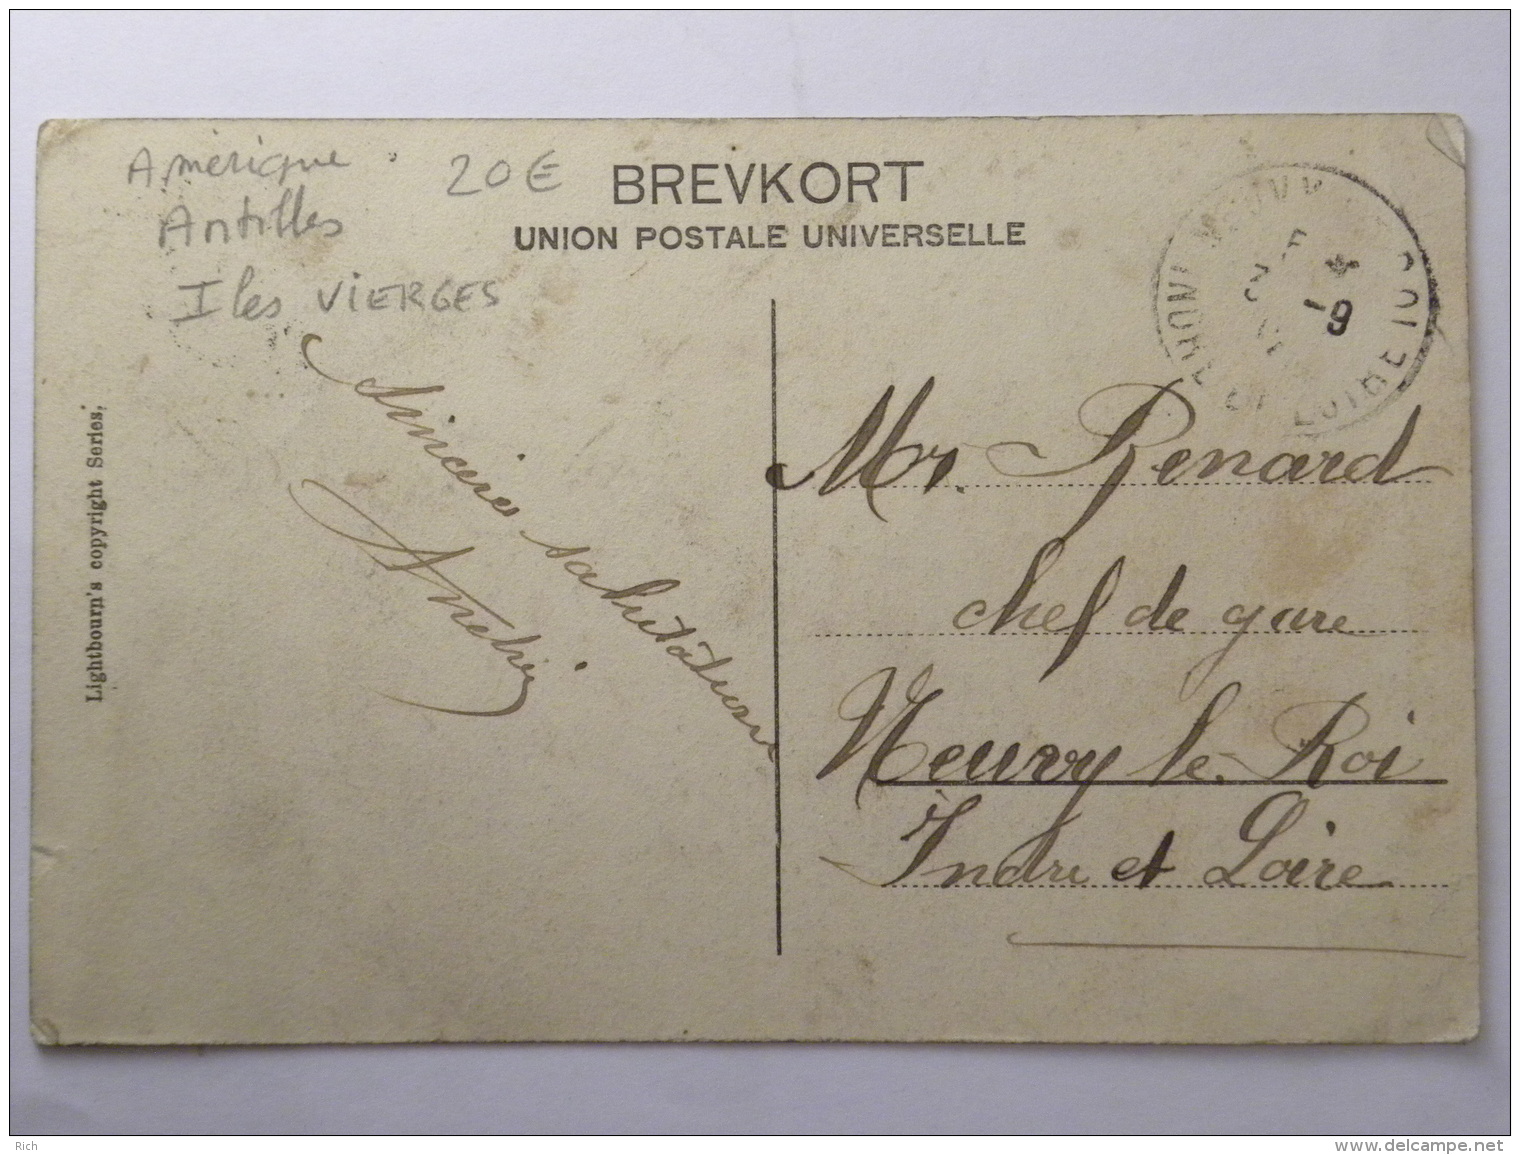 Amérique
Antilles
Iles VIERGES
20€
BREVKORT
UNION POSTALE UNIVERSELLE
Lightbourn's copyright Series.
Sincères salutations
Mr. Renard
chef de gare
Neuvy le Roi
Indre et Loire
INDRE ET LOIRE
-9
Rich
www.delcampe.net